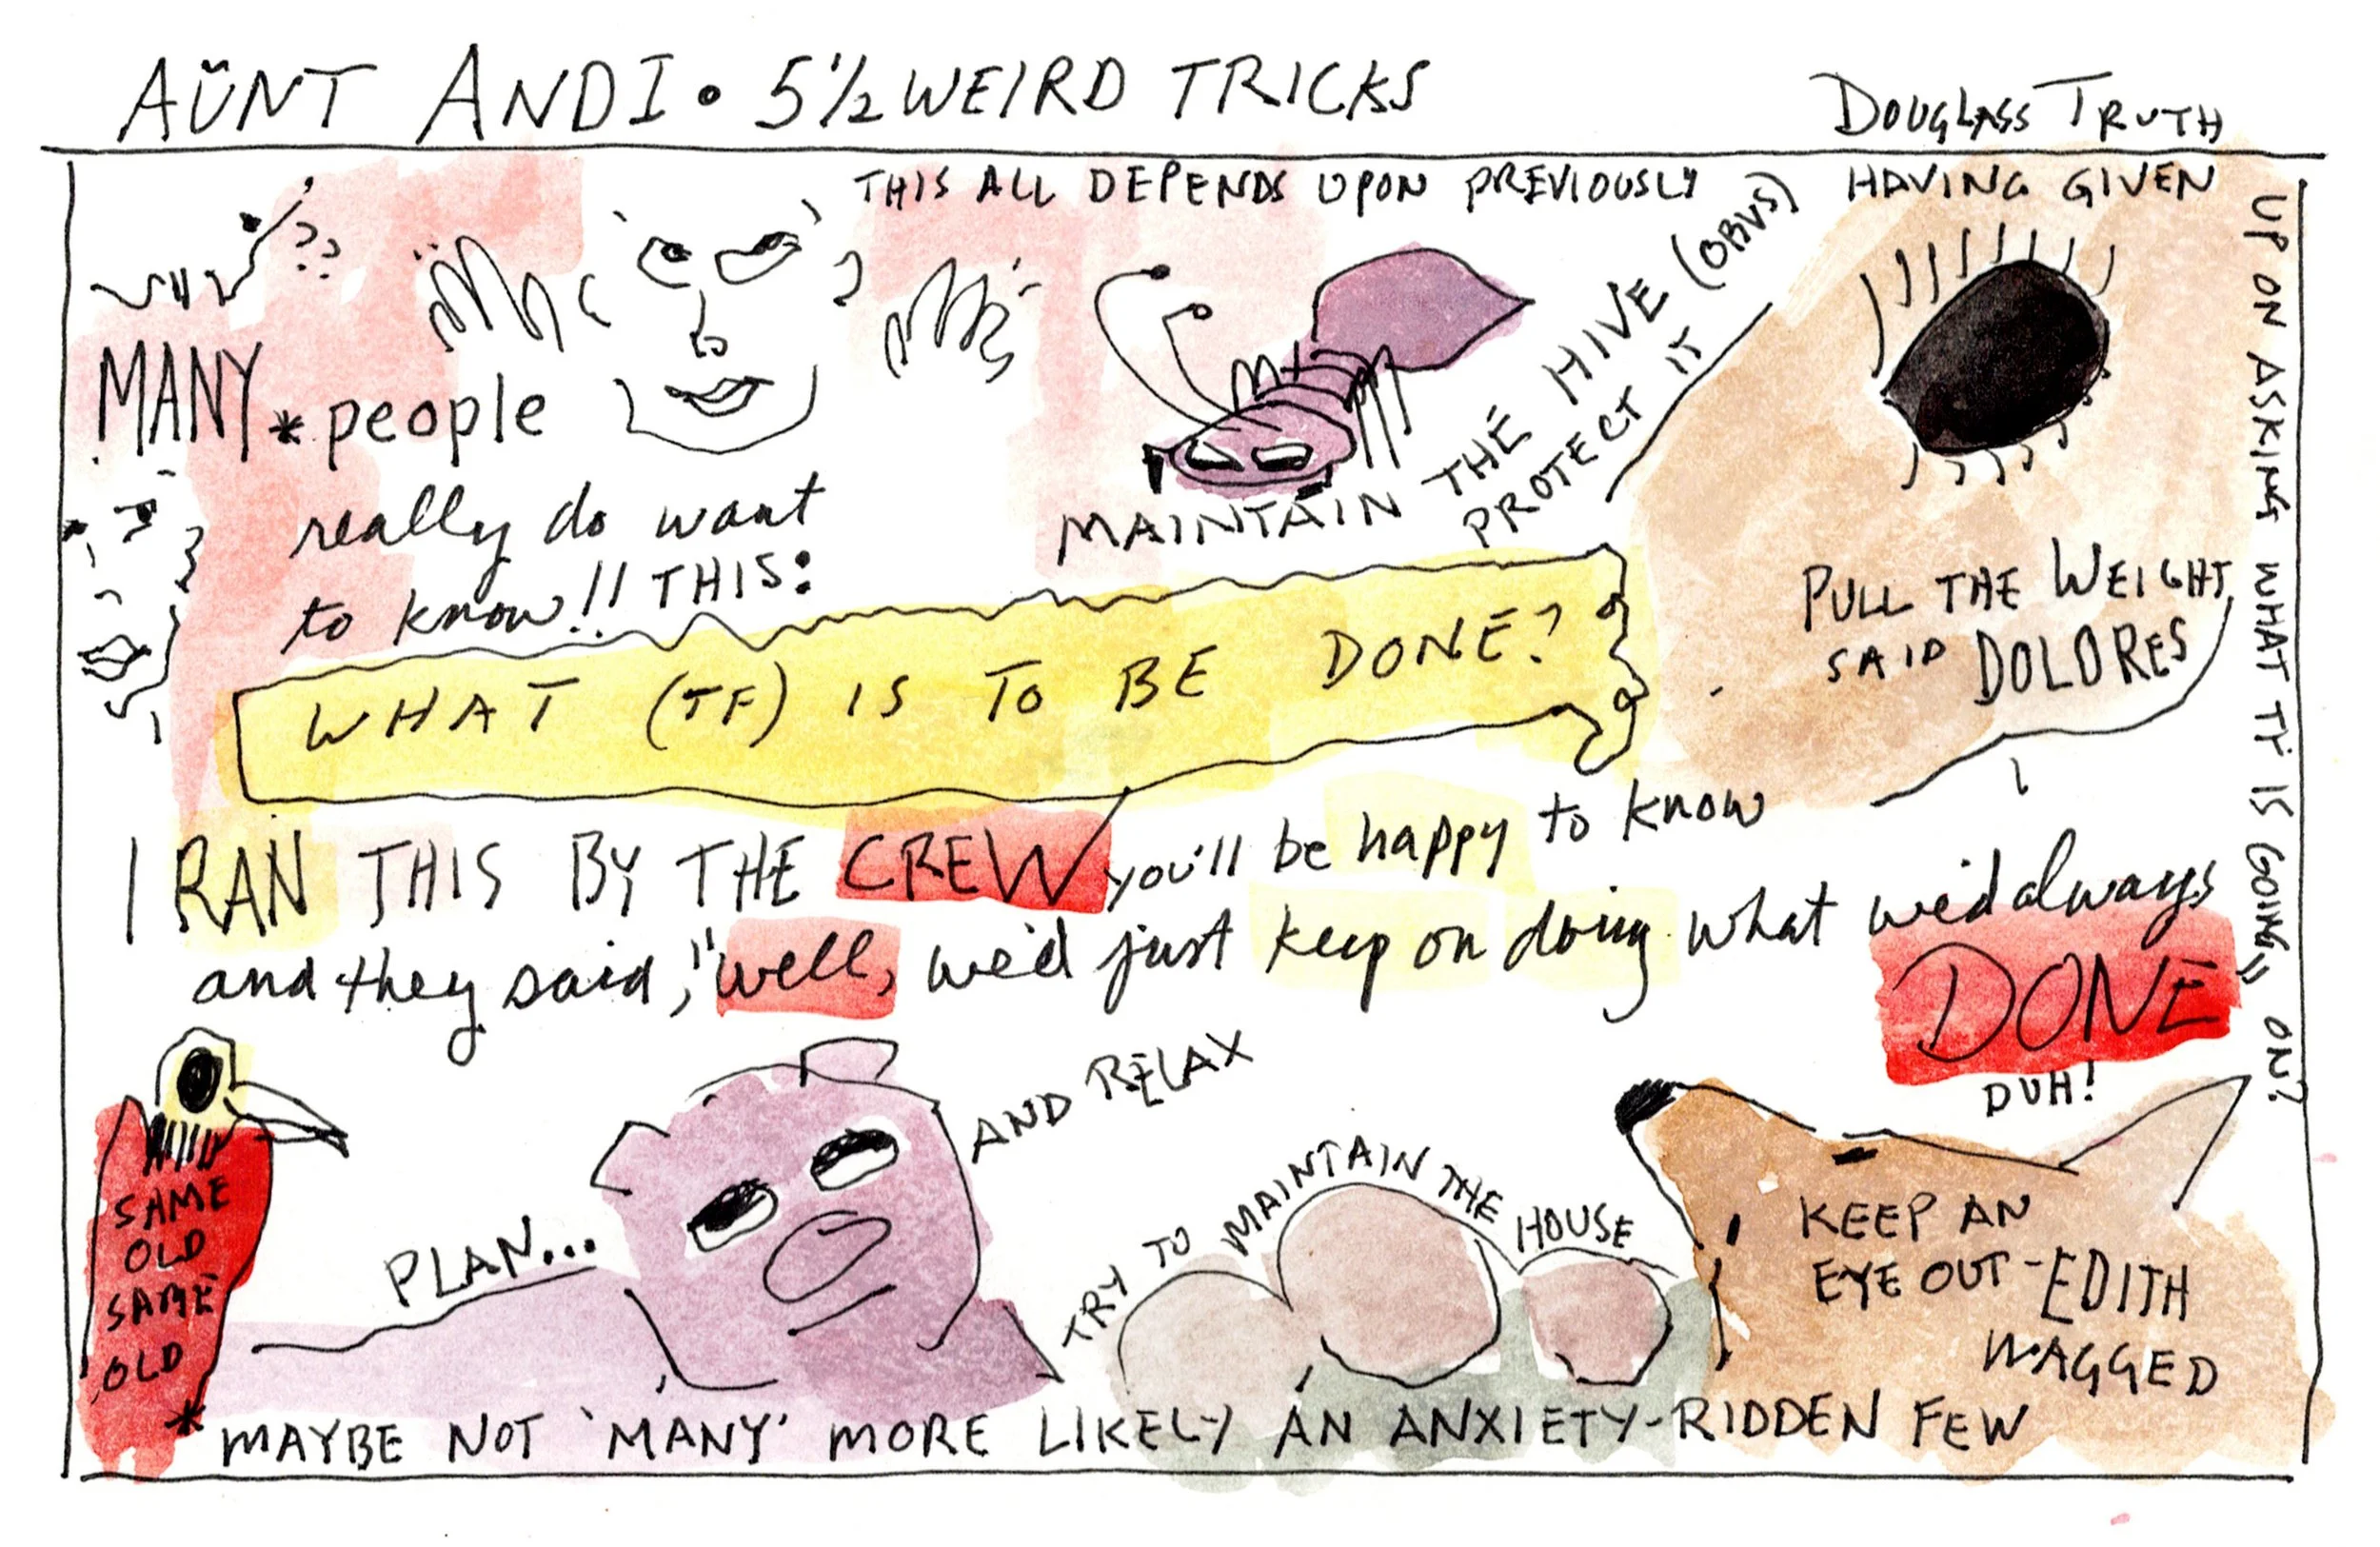 AŬNT ANDI • 5½ WEIRD TRICKS
DOUGLASS TRUTH
THIS ALL DEPENDS UPON PREVIOUSLY HAVING GIVEN
UP ON ASKING WHAT TF IS GOING ON?
??
MANY * people
really do want
to know!! THIS:
MAINTAIN THE HIVE (OBVS)
PROTECT IT
PULL THE WEIGHT,
SAID DOLORES
WHAT (TF) IS TO BE DONE?
I RAN THIS BY THE CREW you'll be happy to know
and they said, "well, we'd just keep on doing what we'd always
DONE"
DUH!
SAME
OLD
SAME
OLD
PLAN...
AND RELAX
TRY TO MAINTAIN THE HOUSE
KEEP AN
EYE OUT - EDITH
WAGGED
* MAYBE NOT 'MANY' MORE LIKELY AN ANXIETY-RIDDEN FEW